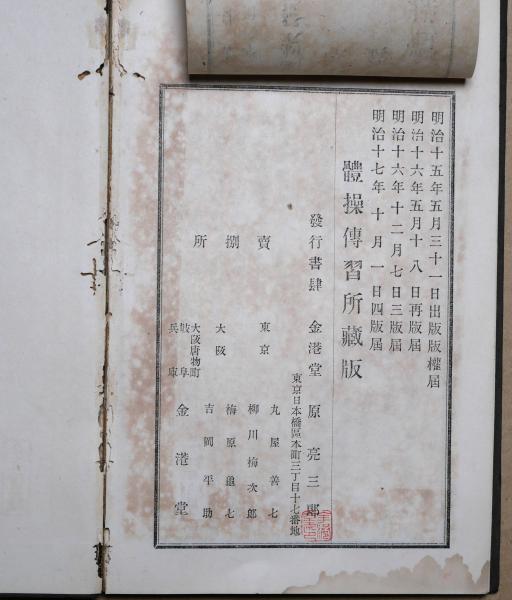 明治十五年五月三十一日出版版權屆
明治十六年五月十八日再版屆
明治十六年十二月七日三版屆
明治十七年十月一日四版屆
體操傳習所藏版
發行書肆 金港堂 原亮三郎
東京日本橋區本町三丁目十七番地
賣捌所
東京 丸屋善七
柳川梅次郎
大阪 梅原龜七
吉岡平助
大阪唐物町
岐阜
兵庫
金港堂